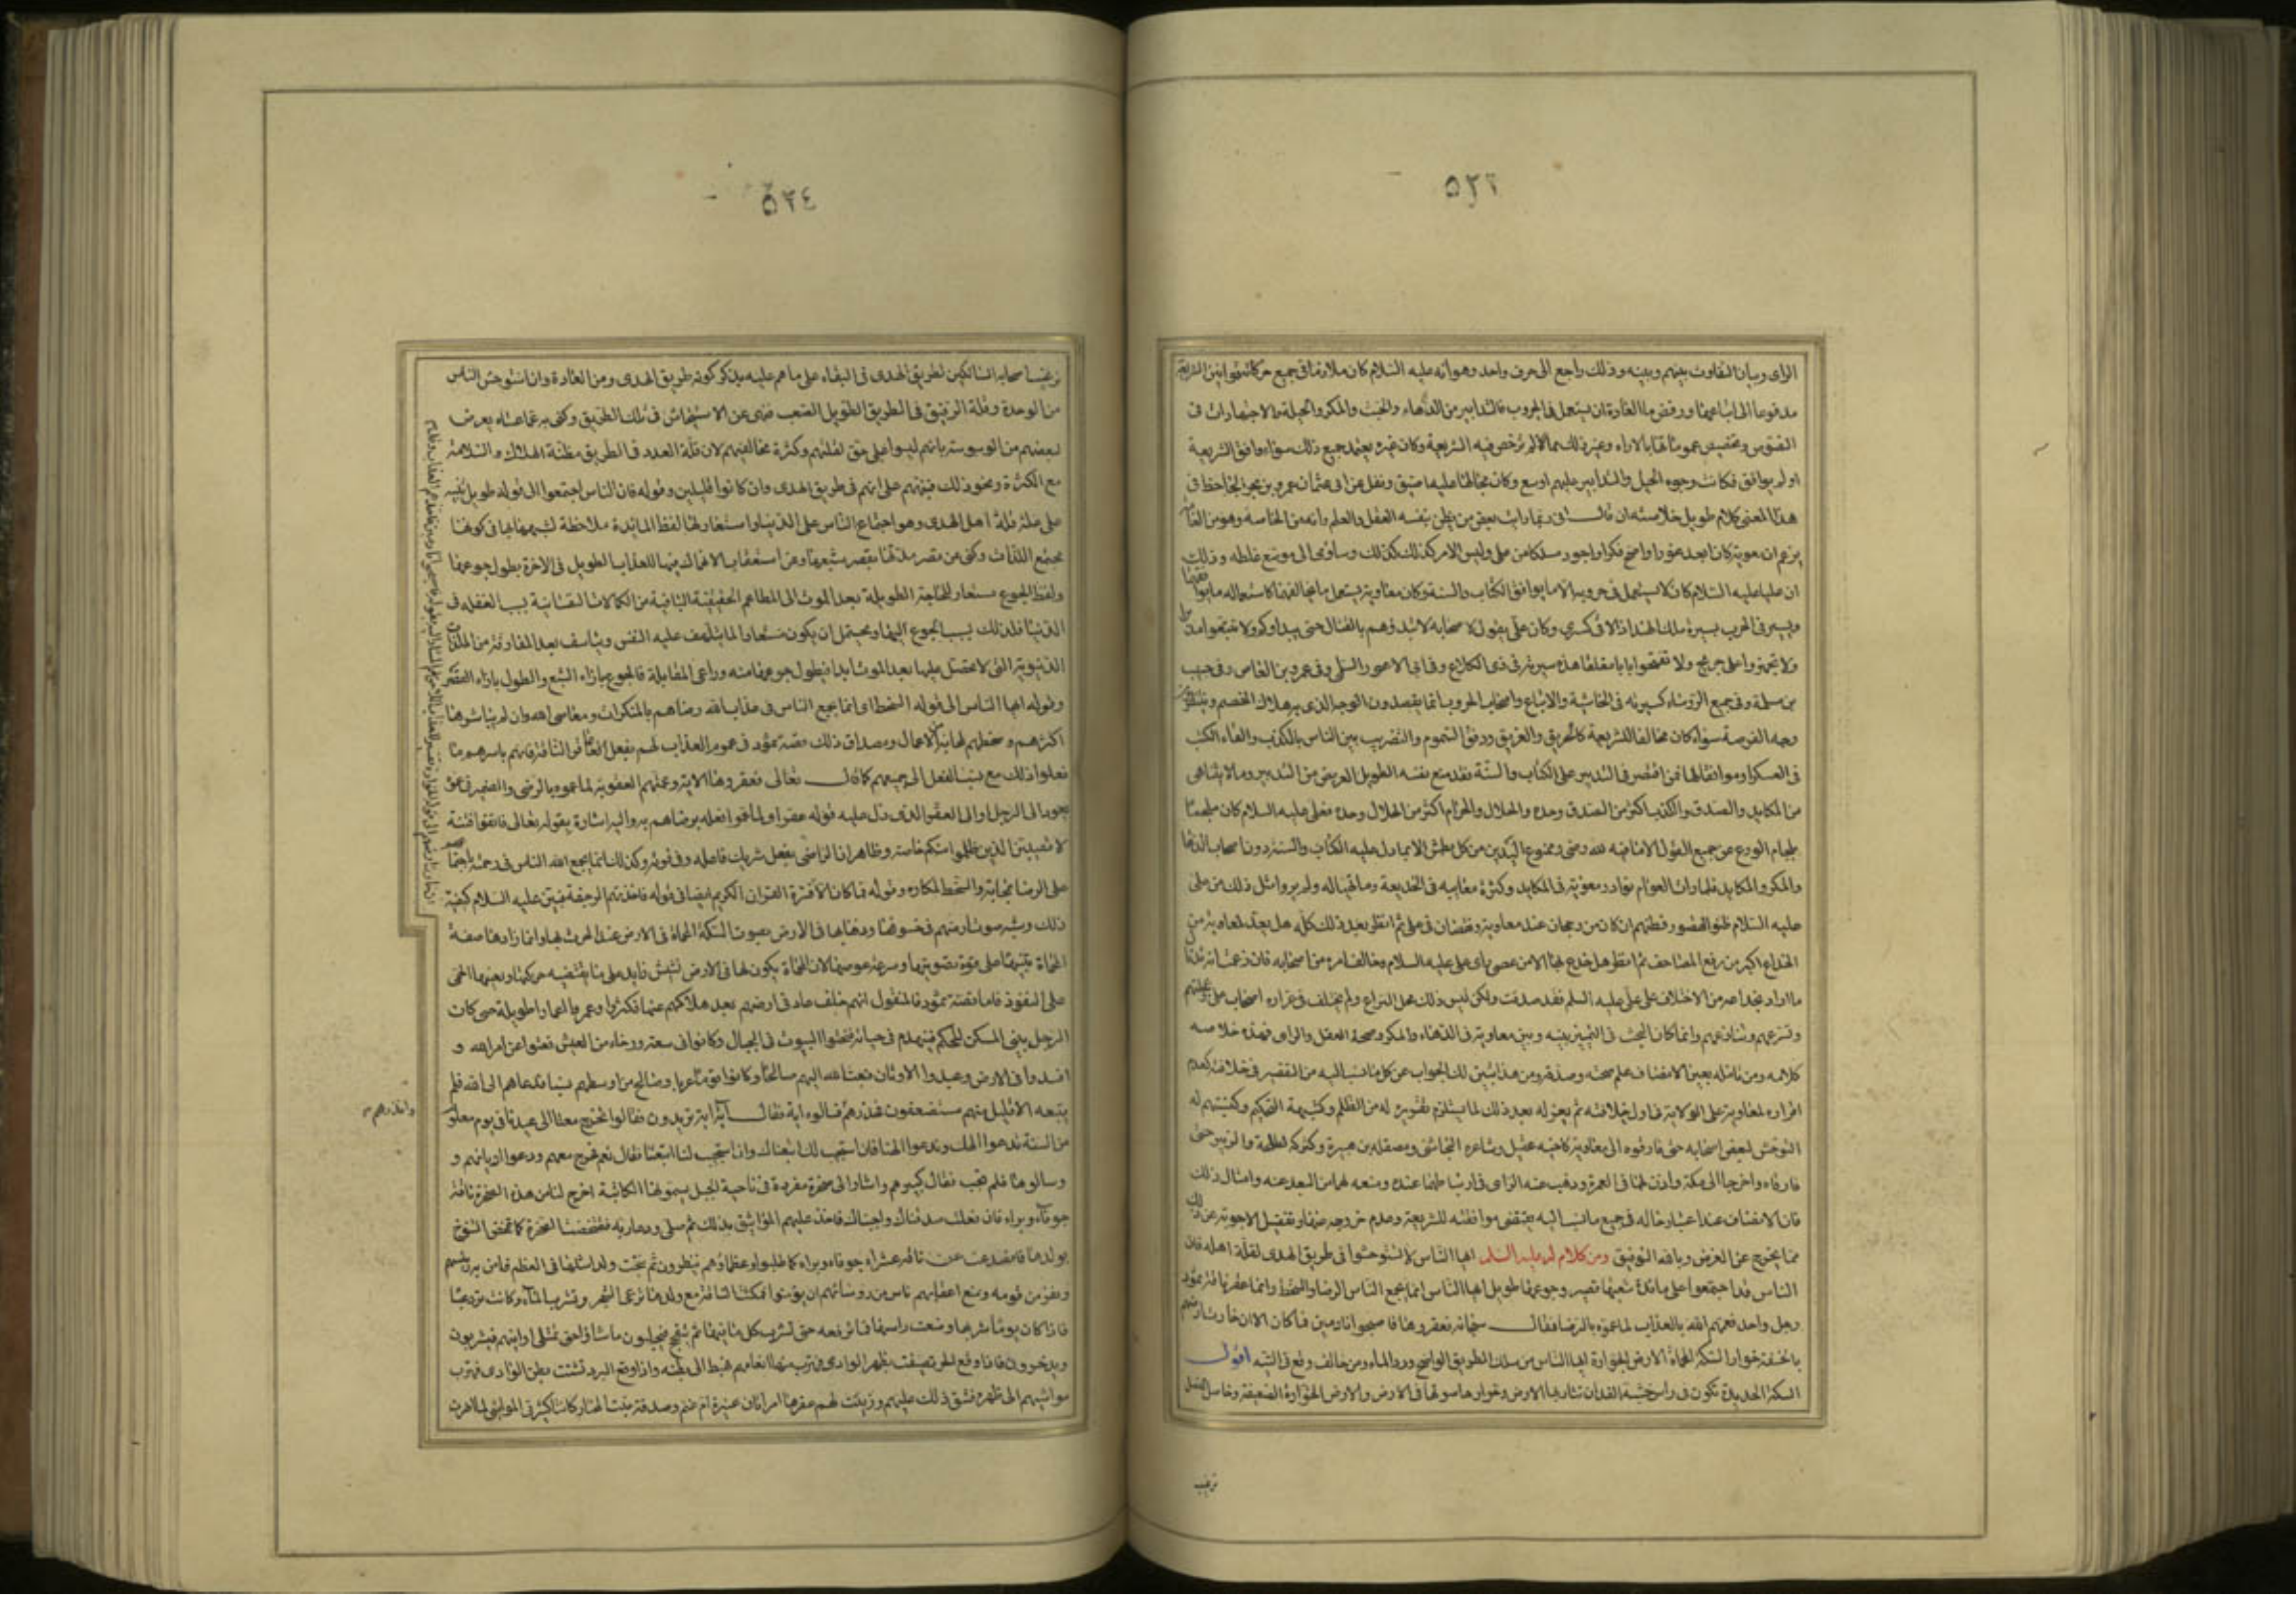 ٥٢٣
الرای وبیان التفاوت بینهم وبینه وذلك راجع الی حرف واحد وهو انه علیه السلام كان ملازما فی جمیع حركاته قوانین الشریعة
مدفوعا الی اتباعها ورفض ما العادة ان یستعمل فی الحروب والتدابیر من الدهاء والخبث والمكر والحیلة والاجتهادات فی
النصوص وتخصیص عموماتها بالاراء وغیر ذلك مما لم ترخص فیه الشریعة وكان غیره یعتمد جمیع ذلك سواء وافق الشریعة
او لم یوافق فكانت وجوه الحیل والتدابیر علیهم اوسع وكان مجالها علیه اضیق ونقل عن ابی عثمان عمرو بن بحر الجاحظ فی
هذا المعنی كلام طویل خلاصته ان قال انی ربما رایت بعض من یظن بنفسه العقل والعلم وانه من الخاصة وهو من العامة
یزعم ان معویة كان ابعد غورا واصح فكرا واجود مسلكا من علی ولیس الامر كذلك وساومی الی موضع غلطه وذلك
ان علیا علیه السلام كان لا یستعمل فی حروبه الا ما یوافق الكتاب والسنة وكان معاویة یستعمل ما یخالفهما كاستعماله ما یوافقهما
ویسیر فی الحرب بسیرة ملك الهند اذا لاقی كسری وكان علی یقول لاصحابه لا تبدؤهم بالقتال حتی یبداوكم ولا تتبعوا مدبرا
ولا تجهزوا علی جریح ولا تفتحوا بابا مغلقا هذه سیرته فی ذی الكلاع وفی ابی الاعور السلمی وفی عمرو بن العاص وفی حبیب
بن مسلمة وفی جمیع الرؤساء كسیرته فی الحاشیة والاتباع واصحاب الحروب انما یقصدون الوجه الذی به هلاك الخصم وینتظرون
وجه الفرصة سواء كان مخالفا للشریعة كالحریق والغریق ودفق السموم والتضریب بین الناس بالكذب والقاء الكتب
فی العسكر او موافقا لها فمن اقتصر فی التدبیر علی الكتاب والسنة فقد منع نفسه الطویل العریض من التدبیر وما لا یتناهی
من المكاید والصدق والكذب اكثر من الصدق وحده والحلال والحرام اكثر من الحلال وحده فعلی علیه السلام كان ملجما
بلجام الورع عن جمیع القول الا ما فیه لله رضی وممنوع الیدین من كل بطش الا بما دل علیه الكتاب والسنة دون اصحاب الدهاء
والمكر والمكاید فلما رات العوام نوادر معویة فی المكاید وكثرة معایبه فی الخدیعة وما تهیا له ولم یروا مثل ذلك من علی
علیه السلام ظنوا القصور فطنهم ان كان من رجحان عند معاویة ونقصان فی علی ثم انظر بعد ذلك كله هل یعد لمعاویة من
الخداع اكبر من رفع المصاحف ثم انظر هل خدع بها الا من عصی رای علی علیه السلام وخالف امره من اصحابه فان زعمت انه قد نال
ما اراد بخداعه من الاختلاف علی علی علیه السلم فقد صدقت ولكن لیس ذلك محل النزاع ولم یختلف فی غرارة اصحاب علی وعجلتهم
وتسرعهم وتنازعهم وانما كان البحث فی التمییز بینه وبین معاویة فی الدهاء والمكر وصحة العقل والرای فهذه خلاصة
كلامه ومن تامله بعین الانصاف علم صحته وصدقه ومن هذا یتبین لك الجواب عن كل ما نسب الیه من التقصیر فی خلافته كعدم
اقراره لمعاویة علی الولایة فی اول خلافته ثم یعزله بعد ذلك لما یستلزم تقریره له من الظلم وكشبهة التحكیم وكنسبتهم له
التوحش لبعض اصحابه حتی فارقوه الی معاویة كاخیه عقیل وشاعره النجاشی ومصقلة بن هبیرة وكتركه لطلحة والزبیر حتی
فارقاه وخرجا الی مكة واذن لهما فی العمرة وذهب عنه الرای فی ارتباطهما عنده ومنعه لهما من البعد عنه وامثال ذلك
فان الانصاف عند اعتبار حاله فی جمیع ما نسب الیه یقتضی موافقته للشریعة وعدم خروجه عنها وتفصیل الاجوبة عن ذلك
مما یخرج عن الغرض وبالله التوفیق ومن كلام له علیه السلم ایها الناس لا تستوحشوا فی طریق الهدی لقلة اهله فان
الناس قد اجتمعوا علی مائدة شبعها قصیر وجوعها طویل ایها الناس انما یجمع الناس الرضا والسخط وانما عقر ناقة ثمود
رجل واحد فعمهم الله بالعذاب لما عموه بالرضا فقال سبحانه فعقروها فاصبحوا نادمین فما كان الا ان خارت ارضهم
بالخسفة خوار السكة المحماة فی الارض الخوارة ایها الناس من سلك الطریق الواضح ورد الماء ومن خالف وقع فی التیه اقول
السكة الحدیدة تكون فی راس خشبة الفدان تثار بها الارض وخوارها صوتها فی الارض والارض الخوارة الضعیفة وحاصل الفصل
ترغیب
٥٢٤
ترغیب اصحابه السالكین لطریق الهدی فی البقاء علی ما هم علیه بذكر كونه طریق الهدی ومن العادة وان استوحش الناس
من الوحدة وقلة الرفیق فی الطریق الطویل الصعب فنهی عن الاستیحاش فی تلك الطریق وكنی به عما عساه یعرض
لبعضهم من الوسوسة بانهم لیسوا علی حق لقلتهم وكثرة مخالفیهم لان قلة العدد فی الطریق مظنة الهلاك والسلامة
مع الكثرة ونحو ذلك فنبههم علی انهم فی طریق الهدی وان كانوا قلیلین وقوله فان الناس اجتمعوا الی قوله طویل تنبیه
علی علة قلة اهل الهدی وهو اجتماع الناس علی الدنیا واستعار لها لفظ المائدة ملاحظة لشبهها بها فی كونها
مجتمع اللذات وكنی عن قصر مدتها بقصر شبعها وعن استعقاب الانهماك فیها للعذاب الطویل فی الاخرة بطول جوعها
ولفظ الجوع مستعار للحاجة الطویلة بعد الموت الی المطاعم الحقیقیة الباقیة من الكمالات النفسانیة بسبب الغفلة فی
الدنیا فلذلك نسب الجوع الیها ویحتمل ان یكون مستعارا لما یتلهف علیه النفس ویتاسف بعد المفارقة من اللذات
الدنیویة التی لا تحصل علیها بعد الموت ابدا فیطول جوعها منه وراعی المقابلة فالجوع بازاء الشبع والطول بازاء القصر
وقوله ایها الناس الی قوله السخط ای انما یجمع الناس فی عذاب الله رضاهم بالمنكرات ومعاصی الله وان لم یباشرها
اكثرهم وسخطهم لمحابه من الاعمال ومصداق ذلك قصة ثمود فی عموم العذاب لهم بفعل العاقر الناقة فانهم باسرهم ما
فعلوا ذلك مع نسبة الفعل الی جمیعهم كما قال تعالی فعقروها الایة وعمتهم العقوبة لما عموه بالرضی والضمیر فی عموه
یعود الی الرجل او الی العقر الذی دل علیه قوله عقر او لما عموا فعله برضاهم به والیه اشارة بقوله تعالی فاتقوا فتنة
لا تصیبن الذین ظلموا منكم خاصة وظاهر ان الراضی بفعل شریك فاعله وفی قوته وكذلك انما یجمع الله الناس فی رحمته باجتماعهم
علی الرضا بمحابه والسخط لمكارهه وقوله فما كان الا فسره القران الكریم ایضا فی قوله فاخذتهم الرجفة فبین علیه السلام كیفیة
ذلك وشبه صوت ارضهم فی خسوفها وذهابها فی الارض بصوت السكة المحماة فی الارض عند الحرث بها وانما زادها صفة
المحماة تنبیها علی قوة تصویتها وسرعة غوصها لان المحماة یكون لها فی الارض نشیش زاید علی ما یقتضیه حركتها ویعینها الحمی
علی النفوذ فاما قصة ثمود فالمنقول انهم خلف عاد فی ارضهم بعد هلاكهم عنها فكثروا وعمروا اعمارا طویلة حتی كان
الرجل یبنی المسكن المحكم فینهدم فی حیاته فنحتوا البیوت فی الجبال وكانوا فی سعة ورخاء من العیش فعتوا عن امر الله و
افسدوا فی الارض وعبدوا الاوثان فبعث الله الیهم صالحا وكانوا قوما عربا وصالح من اوسطهم نسبا فدعاهم الی الله فلم
یتبعه الا قلیل منهم مستضعفون فحذرهم فسالوه ایة فقال ایة ایة تریدون فقالوا تخرج معنا الی عیدنا فی یوم معلوم
وانذرهم
من السنة تدعوا الهك وندعوا الهتنا فان استجیب لك اتبعناك وان استجیب لنا اتبعتنا فقال نعم فخرج معهم ودعوا اوثانهم و
وسالوها فلم تجب فقال كبیرهم واشار الی صخرة مفردة فی ناحیة الجبل یسمونها الكاثبة اخرج لنا من هذه الصخرة ناقة
جوفاء وبراء فان فعلت صدقناك واجبناك فاخذ علیهم المواثیق بذلك ثم صلی ودعا ربه فتمخضت الصخرة كما تمخض النتوج
بولدها فانصدعت عن ناقة عشراء جوفاء وبراء كما طلبوا وعظماؤهم ینظرون ثم نتجت ولدا مثلها فی العظم فامن به رئیسهم
ونفر من قومه ومنع اعقابهم ناس من رؤسائهم ان یؤمنوا فمكثت الناقة مع ولدها ترعی الشجر وتشرب الماء وكانت ترد غبا
فاذا كان یومها شربها وضعت راسها فما ترفعه حتی تشرب كل ما فیها ثم تتفجج فیحلبون ما شاؤا حتی تمتلی اوانیهم فیشربون
ویدخرون فاذا وقع الحر تصیفت بظهر الوادی فتهرب منها انعامهم فتهبط الی بطنه واذا وقع البرد تشتت ببطن الوادی فتهرب
مواشیهم الی ظهره فشق ذلك علیهم وزینت لهم عقرها امراتان عنیزة ام غنم وصدقة بنت المختار كانتا كثیرتی المواشی لما اضرت